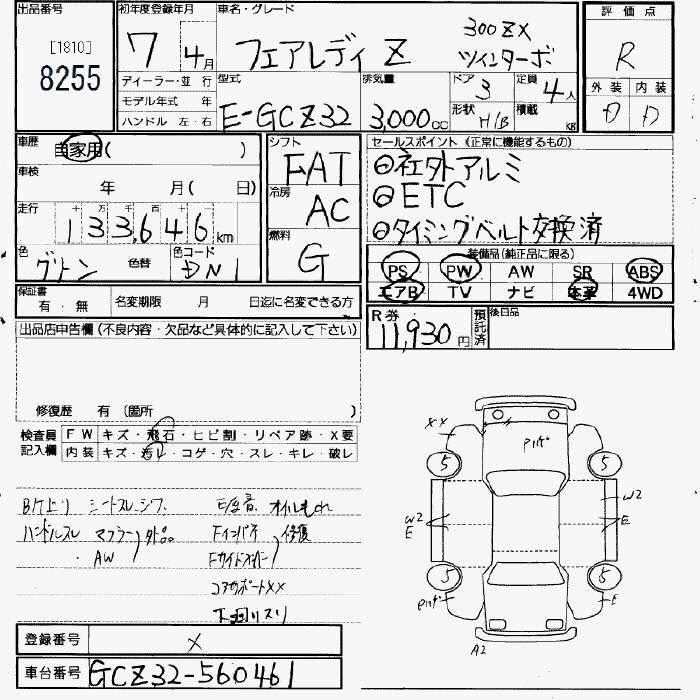 出品番号
[1810]
8255
初年度登録年月
7 4月
車名・グレード
フェアレディ Z 300ZX
ツインターボ
評価点
R
ディーラー・並 行
モデル年式 年
ハンドル 左・右
型式
E-GCZ32
排気量
3,000cc
ドア 3
形状 H/B
定員 4人
積載 kg
外装 内装
D D
車歴
自家用( )
車検
年 月( 日)
走行
十 万 千 百 十
133,646km
色
グリーン
色替
色コード
DN1
シフト
FAT
冷房
AC
燃料
G
セールスポイント (正常に機能するもの)
◎社外アルミ
◎ETC
◎タイミングベルト交換済
装備品(純正品に限る)
PS PW AW SR ABS
エアB TV ナビ 本革 4WD
保証書
有・無
名変期限 月 日迄に名変できる方
R券
11,930円
預託済
後日品
出品店申告欄(不良内容・欠品など具体的に記入して下さい)
修復歴 有 (箇所 )
検査員
記入欄
FW キズ・飛石・ヒビ割・リペア跡・X要
内装 キズ・汚レ・コゲ・穴・スレ・キレ・破レ
シートスレ、シワ
オイルもれ
ハンドルスレ マフラー 外品
Fインパネ 修復
AW
コアサポートXX
下回りスリ
XX
5
5
W2
E
W2
E
5
5
E
A2
登録番号
X
車台番号
GCZ32-560461